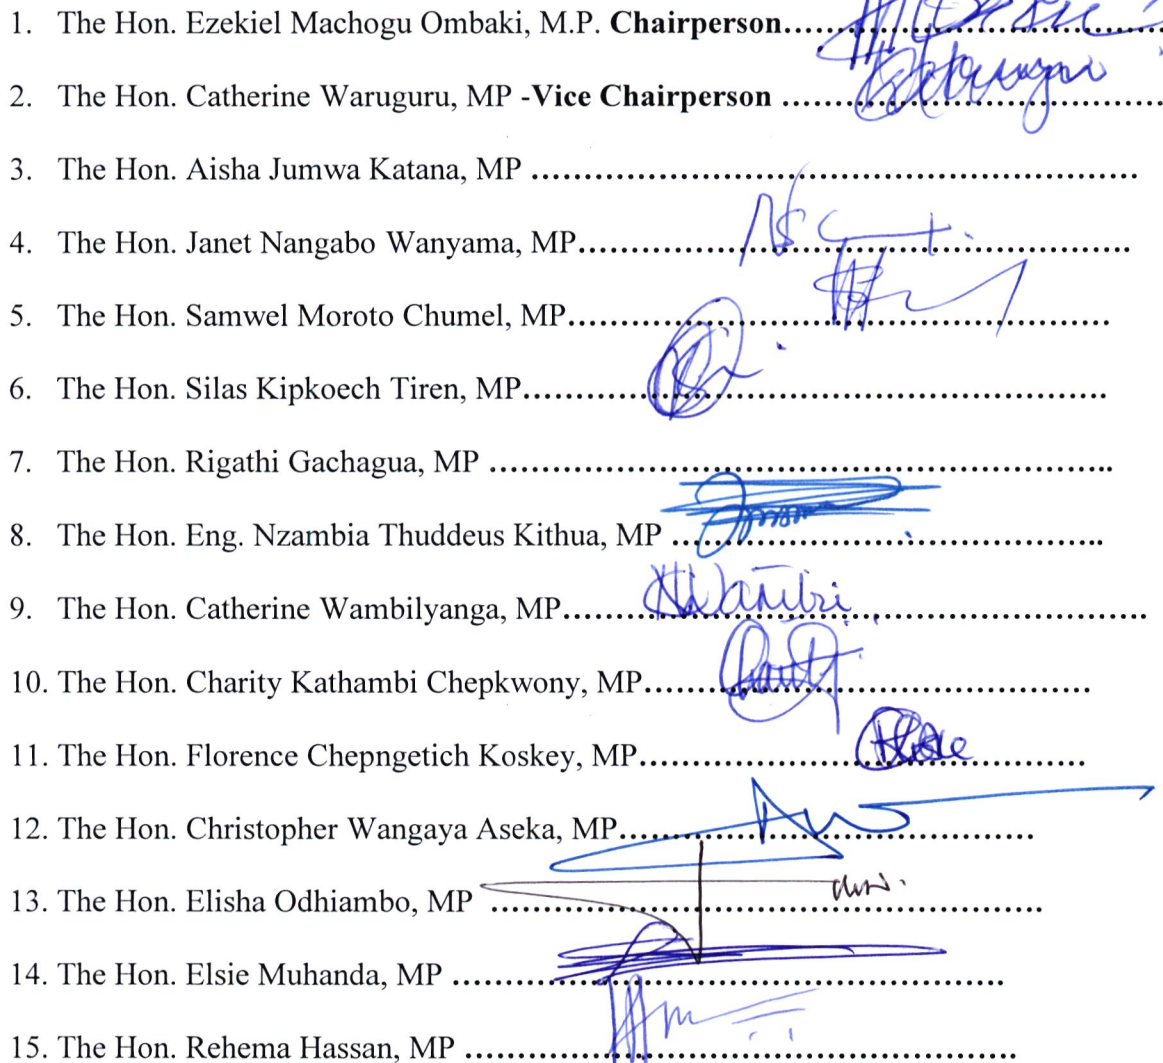 1. The Hon. Ezekiel Machogu Ombaki, M.P. Chairperson..........................................
2. The Hon. Catherine Waruguru, MP -Vice Chairperson ..........................................
3. The Hon. Aisha Jumwa Katana, MP ..........................................
4. The Hon. Janet Nangabo Wanyama, MP..........................................
5. The Hon. Samwel Moroto Chumel, MP..........................................
6. The Hon. Silas Kipkoech Tiren, MP..........................................
7. The Hon. Rigathi Gachagua, MP ..........................................
8. The Hon. Eng. Nzambia Thuddeus Kithua, MP ..........................................
9. The Hon. Catherine Wambilyanga, MP..........................................
10. The Hon. Charity Kathambi Chepkwony, MP..........................................
11. The Hon. Florence Chepngetich Koskey, MP..........................................
12. The Hon. Christopher Wangaya Aseka, MP..........................................
13. The Hon. Elisha Odhiambo, MP ..........................................
14. The Hon. Elsie Muhanda, MP ..........................................
15. The Hon. Rehema Hassan, MP ..........................................